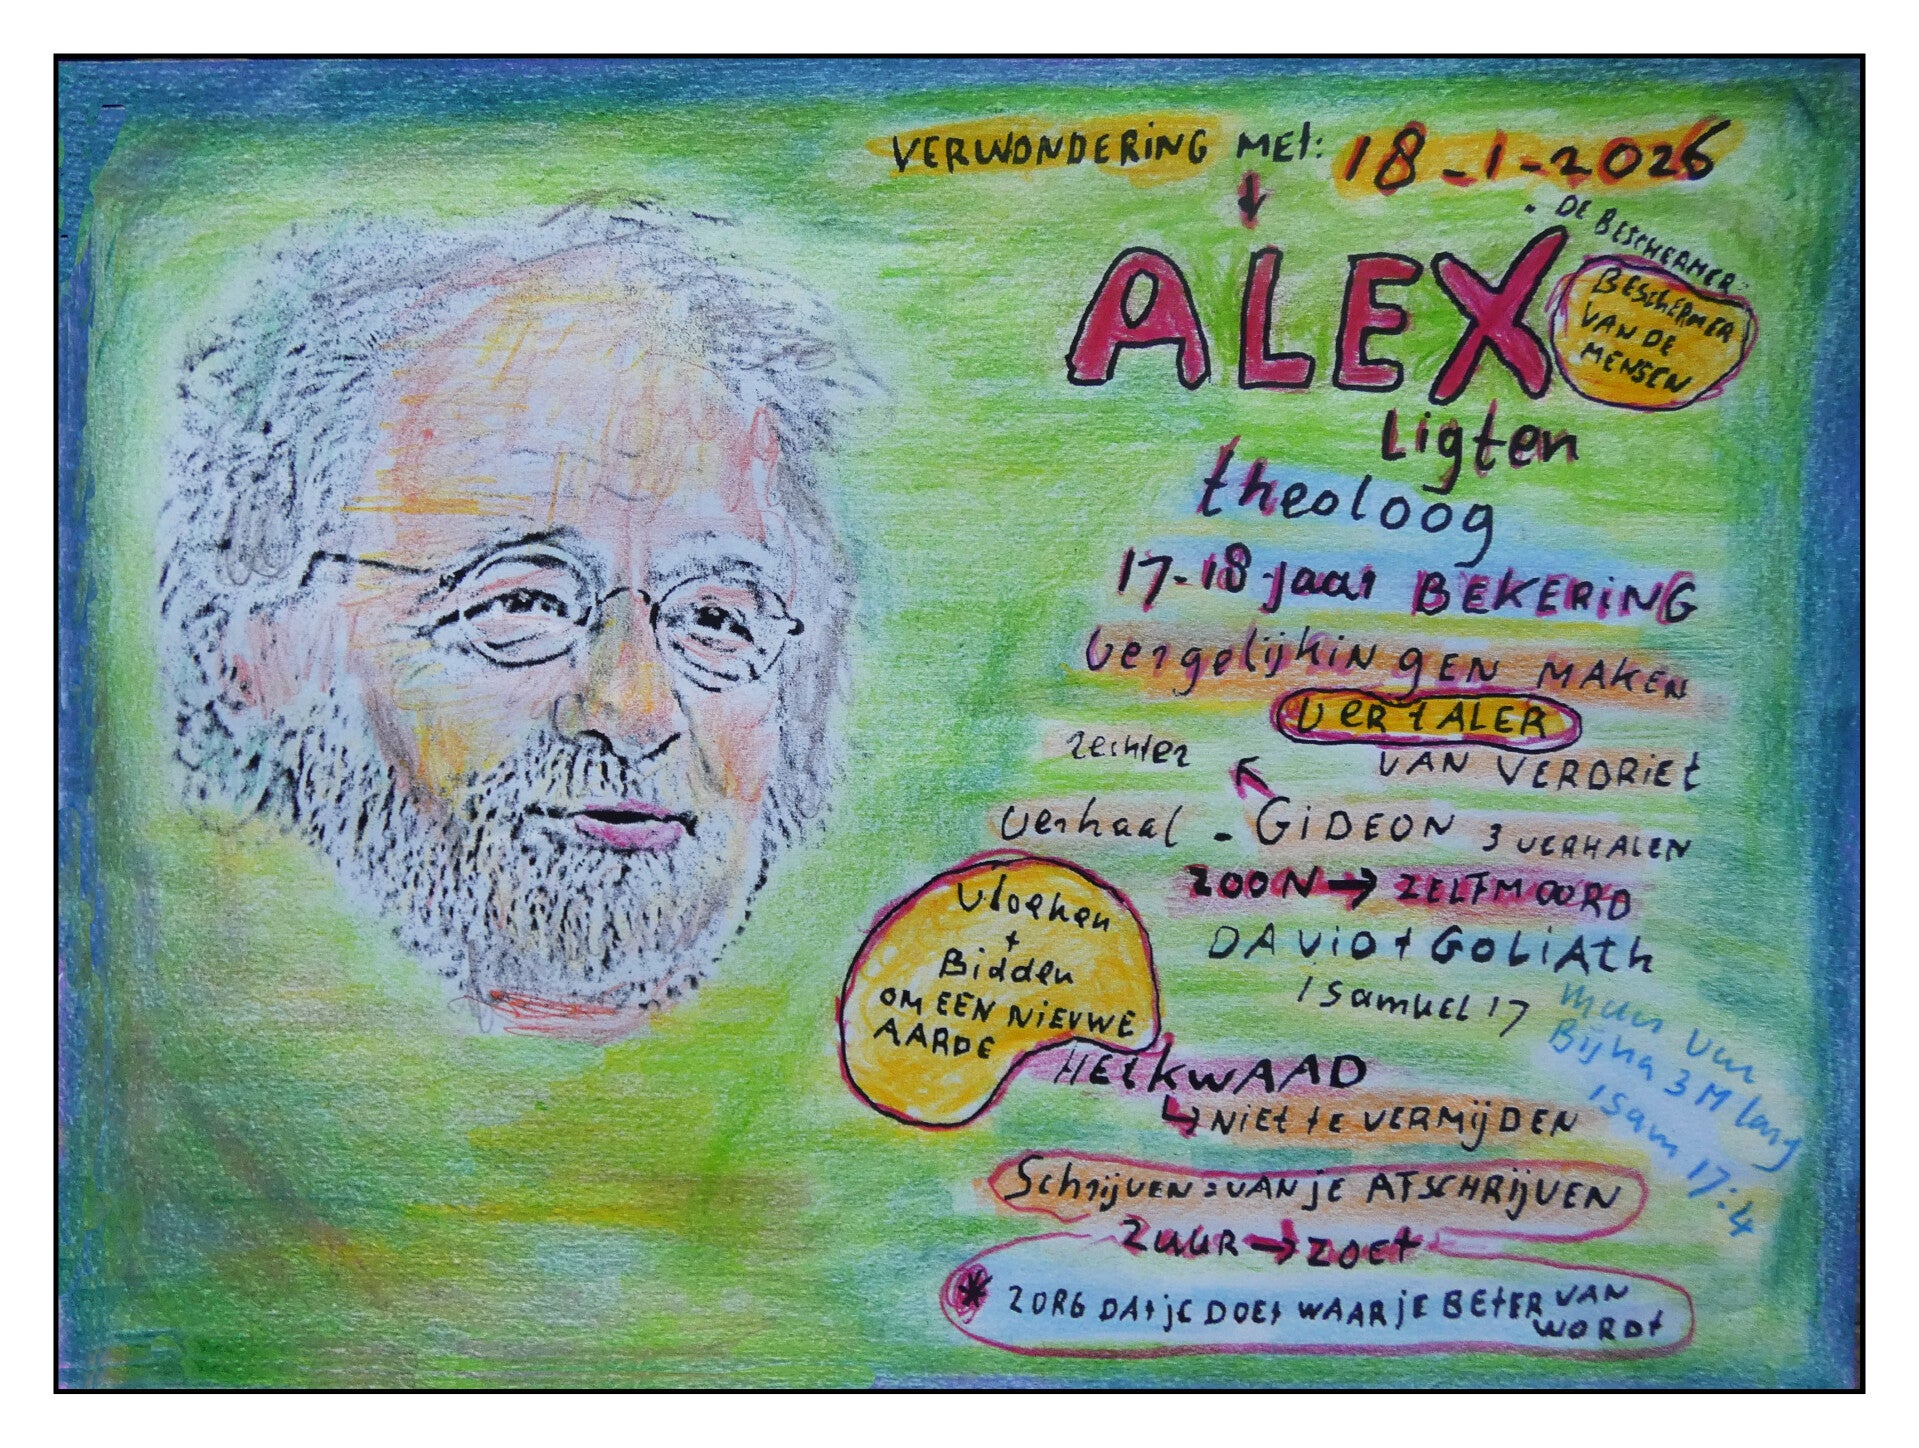 VERWONDERING MEt: 18-1-2026
• DE BESCHERMER
ALEX
BESCHERMER
VAN DE
MENSEN
Ligten
theoloog
17-18 jaar BEKERiNG
VergelijkiNgEN MAKEN
VERtALER
VAN VERDRiEt
rechter
Verhaal - GiDEON 3 VERHALEN
ZOON → ZELFMOORD
DAViD + GOLiAth
1 SamuEL 17
Vloeken
+
Bidden
OM EEN NiEUWE
AARDE
Man van
Bijna 3 M lang
1 Sam 17:4
HEtKWAAD
↳ NiEt tE VERMijDEN
Schrijven = VAN jE AFSCHRijVEN
ZUUR → ZOEt
* ZORG DAt jE DOEt WAAR jE BEtER VAN
WORDt